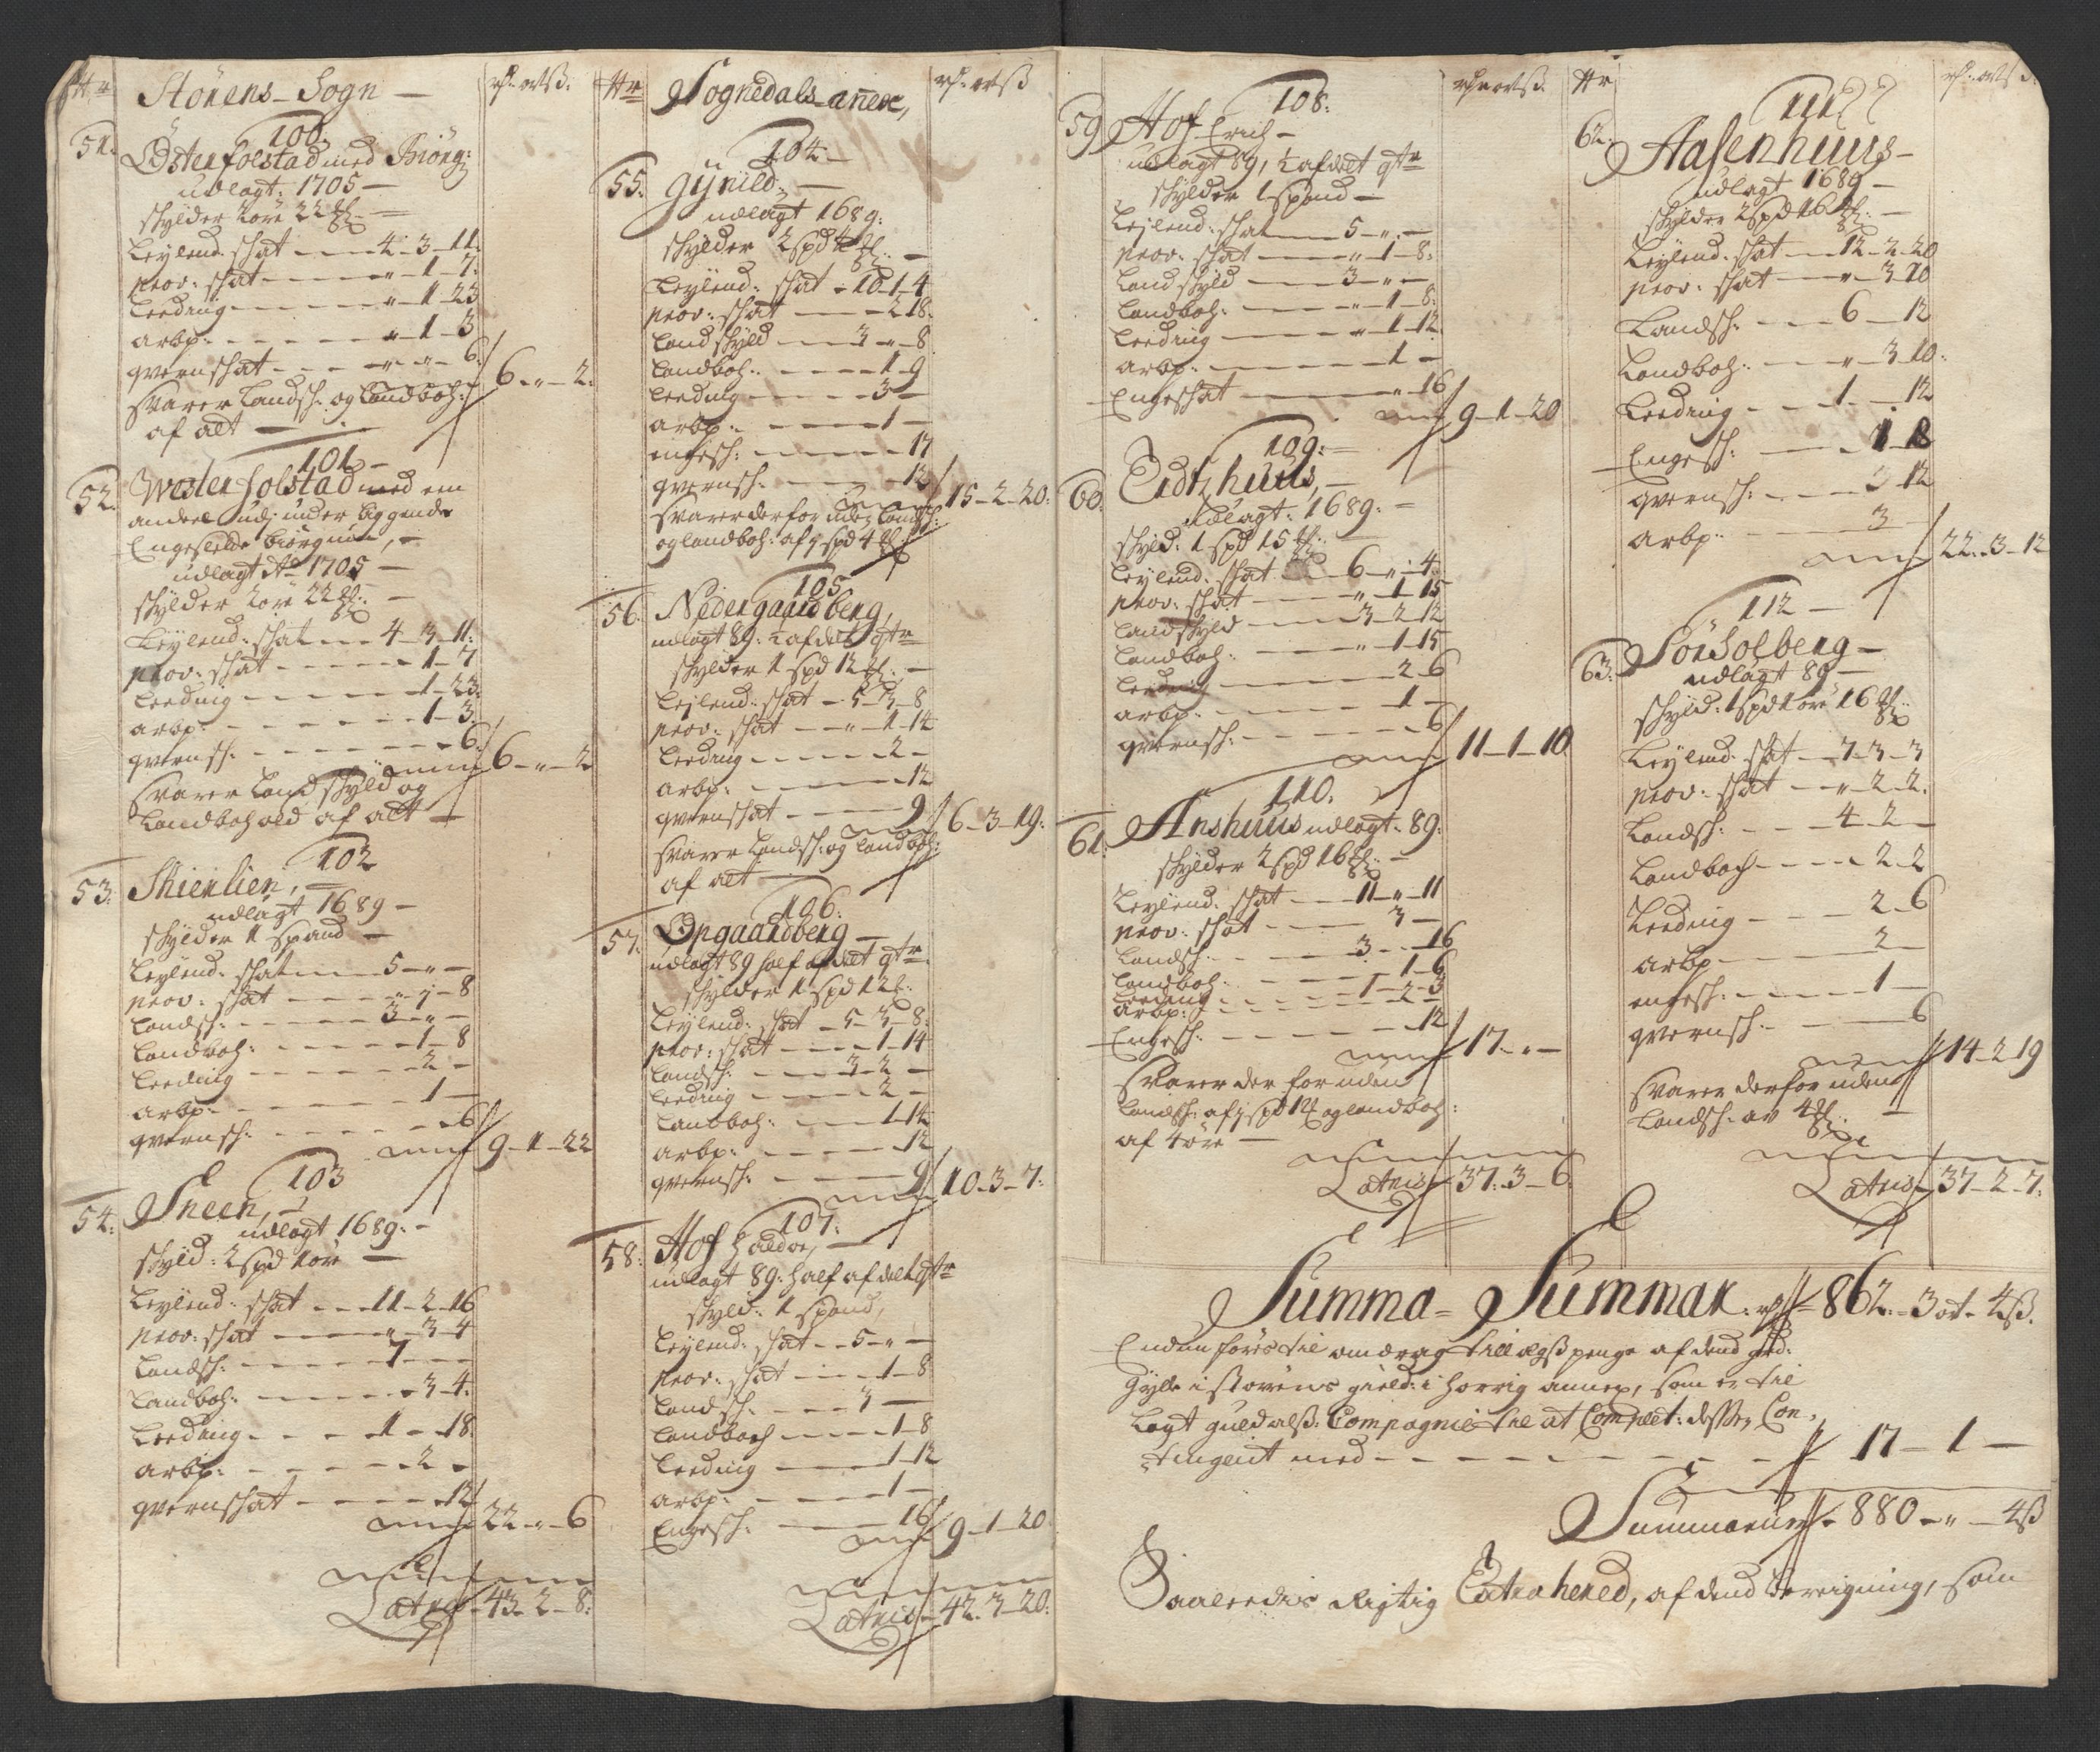 Nr Störens Sogn — rd. ort ß.
100.
51. Österfolstad med Biörg:
udlagt. 1705 —
skylder 2 öre 22 ℔. —
Leylend. skat — 4 - 3 - 11.
prov: skat — " - 1 - 7.
Leeding — " - 1 - 23
arbp. — " - 1 - 3
qvernskat — " - " - 6. / 6 - " - 2.
Svarer Landsk. og Landboh.
af alt —
101 —
52. Wester folstad med em
andeel udj under liggende
Engeslette Biörgmoe, —
udlagt Ao 1705 —
skylder 2 öre 22 ℔. —
Leylend. skat — 4 - 3 - 11.
prov: skat — 1 - 7
Leeding — 1 - 23.
arbp. — 1 - 3.
qvernsk. — 6. / 6 - " - 2
Svarer Landskyld og
Landbohold af alt —
102
53. Skienlien, —
udlagt 1689 —
skylder 1 spand —
Leylend. skat — 5 - " —
prov: skat — " - 1 - 8
Landsk: — 3 - " —
Landboh: — 1 - 8
Leeding — 2 —
arbp. — 1 —
qvernsk: — 6 / 9 - 1 - 22
103
54. Sneen, —
udlagt 1689. —
skyld: 2 spd 1 ör —
Leylend. skat — 11 - 2 - 16
prov: skat — " - 3 - 4
Landsk: — 7 —
Landboh: — 3 - 4.
Leeding — 1 - 18
arbp: — 2 —
qvernskat — 12 / 22 - " - 6
Latus - 43 - 2 - 8.
Nr Sognedals anex, rd. ort ß
104 —
55. Gynild, —
udlagt 1689.
skylder 2 spd 4 ℔. —
Leylend: skat - 10 - 1 - 4
prov: skat — 2 - 18.
Landskyld — 3 - " - 8
Landboh: — 1 - 9
Leeding — 3 —
arbp: — 1 —
engesk: — 17
qvernsk. — 12 / 15 - 2 - 20.
Svarer derfor uden Landsk:
og Landboh: af 1 spd 4 ℔.
105
56. Nedergaard berg,
udlagt 89: ½ afdeel qtr
skylder 1 spd 12 ℔. —
Leylend: skat — 5 - 3 - 8
prov: skat — " - 1 - 14
Leeding — 2 —
arbp: — 12
qvernskat — 9 / 6 - 3 - 19.
Svarer Landsk: og Landboh:
af alt —
106.
57. Opgaardberg —
udlagt 89 half afdeel qtr
skylder 1 spd 12 ℔.
Leylend: skat — 5 - 3 - 8.
prov: skat — 1 - 14
Landsk: — 3 - 2 —
Leeding — 2 —
Landboh: — 1 - 14
arbp: — 12
qvernsk. — 9 / 10 - 3 - 7.
107.
58. Hof Haldor, —
udlagt 89: half afdeelt qtr
skyld: 1 spand,
Leylend: skat - 5 - " —
prov: skat — 1 - 8
Landsk: — 3 —
Landboh — 1 - 8
Leeding — 1 - 12
arbp. — 1 —
Engesk: — 16 / 9 - 1 - 20
Latus - 42 - 3 - 20.
108. rd ort ß.
59. Hof Erich —
udlagt 89, ½ afdeelt qtr
skylder 1 spand —
Leylend: skat — 5 - " —
prov: skat — " - 1 - 8.
Landskyld — 3 - " —
Landboh: — " - 1 - 8.
Leeding — " - 1 - 12.
arbp: — 1 —
Engeskat — " - 16 / 9 - 1 - 20
109. —
60. Eidtzhuus, —
udlagt. 1689. —
skyld: 1 spd 15 ℔.
Leylend: skat — 6 - " - 4.
prov: skat — " - 1 - 15
Landskyld — 3 - 2 - 12
Landboh: — " - 1 - 15
Leeding — 2 - 6
arbp: — 1 —
qvernsk: — 6 / 11 - 1 - 10
110.
61. Anshuus udlagt. 89.
skylder 2 spd 16 ℔. —
Leylend: skat — 11 - " - 11
prov: skat — 3 —
Landsk: — 3 - " - 16
Landboh: — 1 - 6
Leeding — 1 - 2 - 3
arbp: — 2 —
Engesk: — 12 / 17 - " —
Svarer der for uden
Landsk: af 1 spd 12 ℔ og landboh:
af 4 öre —
Latus - 37 - 3 - 6
Nr 111 rd. ort ß.
62. Aasenhuus —
udlagt 1689 —
skylder 2 spd 16 ℔. —
Leylend: skat — 12 - 2 - 20
prov: skat — " - 3 - 10
Landsk: — 6 - 12
Landboh: — " - 3 - 10.
Leeding — 1 - 12
Engesk: — 1 - 8
qvernsk: — 3 - 12
arbp: — 3 — / 22 - 3 - 12
112 —
63. Sörsolberg —
udlagt 89 —
skyld: 1 spd 1 öre 16 ℔.
Leylend: skat — 7 - 3 - 3
prov: skat — " - 2 - 2.
Landsk: — 4 - 2 —
Landboh — 2 - 2
Leeding — 2 - 6
arbp — 2 —
engesk: — 1 —
qvernsk: — 6 / 14 - 2 - 19
Svarer derfor uden
Landsk: av 4 ℔. —
Latus - 37 - 2 - 7.
Summa - Summar. rd - 862 - 3 ort - 4 ß.
Endnu föris til andrag tillægß penge af dend
i Störens gield: i Horrig annex, som er til
lagt Guldalß: Compagnie til at Complet: desses Con-
tingent med — 17 - 1 —
Summarum - 880 - " - 4 ß
Saaleedis Rigtig Extraherred, af dend bereigning, som